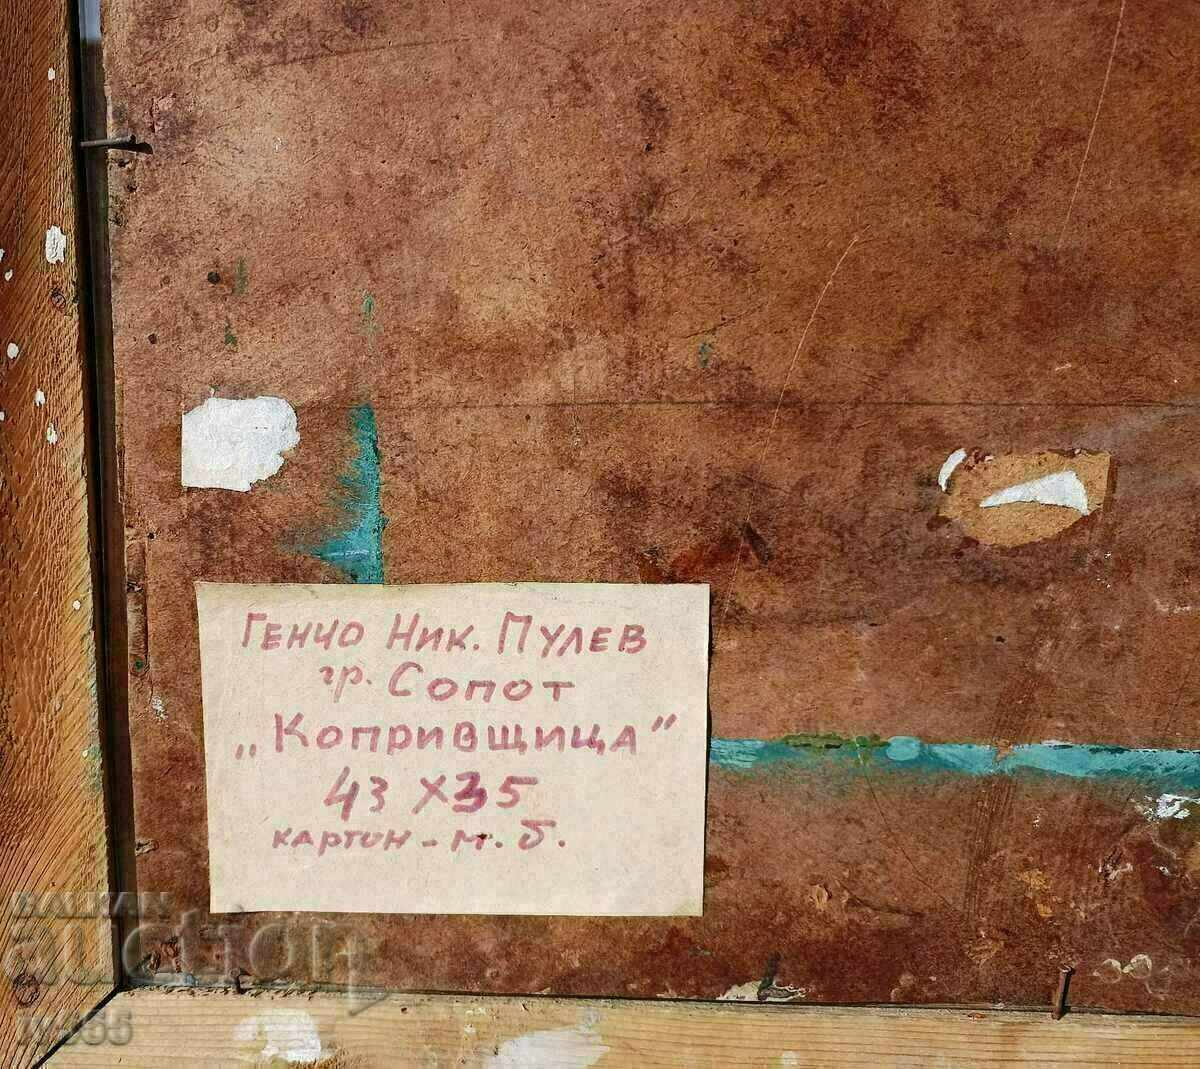 Генчо Ник. Пулев
гр. Сопот
„Копривщица"
43 x 35
картон - м. б.
BALKAN
auction